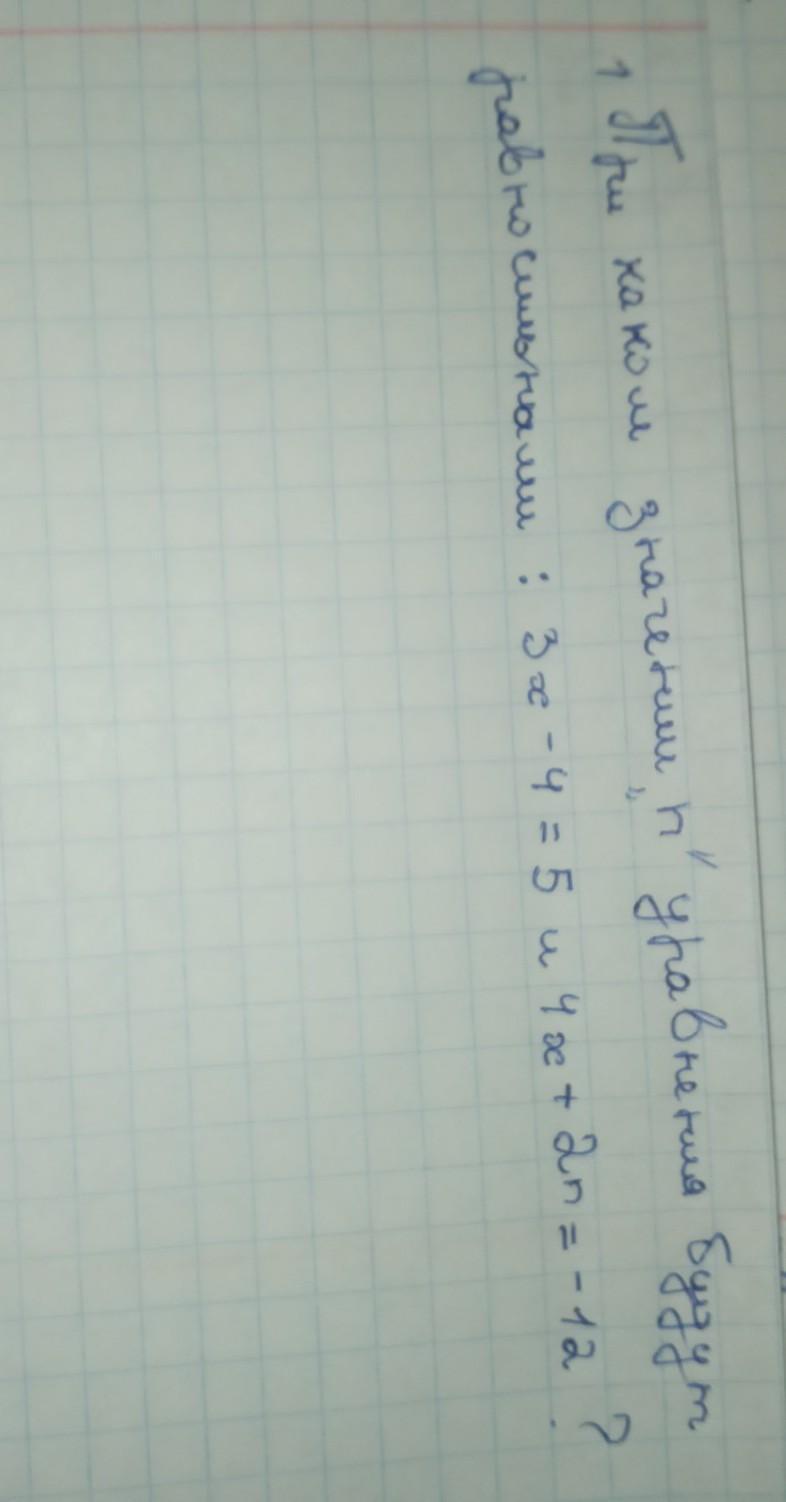 1 При каком значении „n" уравнения будут
равносильными : 3x - 4 = 5 и 4x + 2n = -12 ?